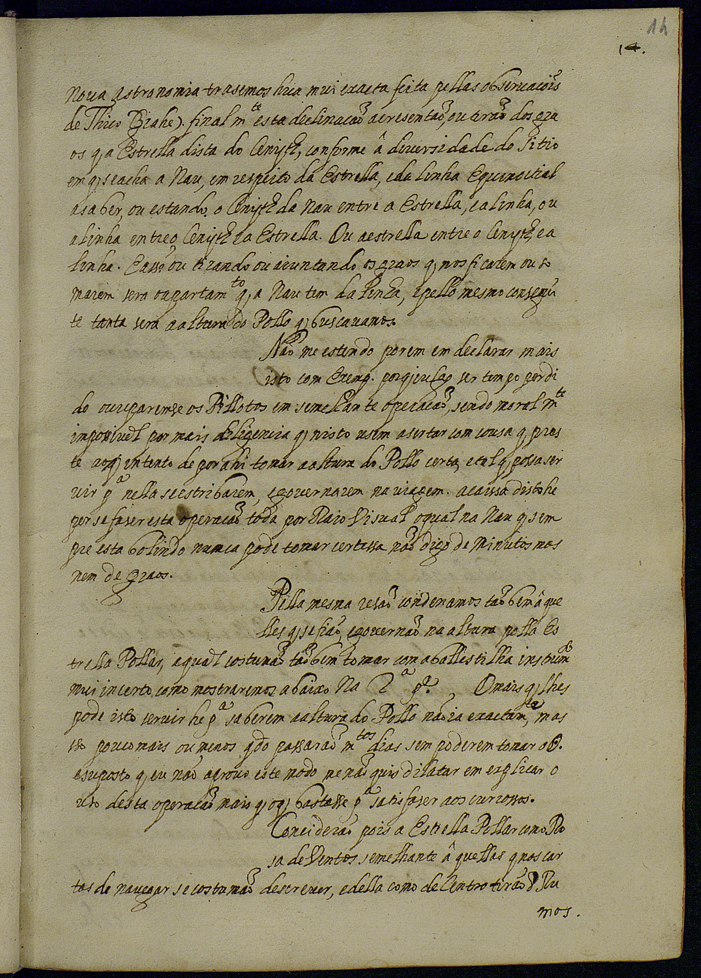 14
14.
Noua Astronomia trasemos hũa mui exacta feita pellas obseruaçois
de Thico Brahe). finalmte esta declinacaõ acresentaõ, ou tiraõ dos gra
os q, a Estrella dista do Cenith, conforme â diuersidade do sitio
em q, se acha a Nau, em respeito da Estrella, e da linha Equinocial
a saber, ou estando, o Cenith da Nau entre a Estrella, e a linha, ou
a linha entre o Cenith e a Estrella. Ou a estrella entre o Cenith, e a
linha. E assi ou tirando ou aiuntando, os graos q, nos ficarem ou so
marem sera o apartamto q, a Nau tem da linha, e pello mesmo conseqũ
te tanta sera a altura do Pollo q, buscauamos.
Naõ me estendo porem em declarar mais
isto com Exemp. porq, julgo ser tempo perdi
do ocuparemse os Pillotos em semelhante operacaõ, sendo moralmte
impossiuel por mais deligencia q, nisto usem asertar com cousa q, pres
te ao q, intento de por ahi tomar a altura do Pollo certa, e tal q, possa ser
uir pa nella se estribarem, e gouernarem na uiagem. a causa disto he
por se fazer esta operacaõ toda por Raio Visual o qual na Nau q, sem
pre esta bolindo nunca pode tomar certessa naõ digo de Minutos mas
nem de graos.
Pella mesma resaõ condenamos taõbem âque
lles q, se fiaõ, e gouernaõ na altura pella Es
trella Pollar, a qual costumaõ taõbem tomar com a ballestilha instrumto
mui incerto, como mostraremos abaixo Na 2a pa. O mais q, lhes
pode isto seruir he pa saberem a altura do Pollo naõ ia exactamte, mas
sò pouco mais ou menos qdo passaraõ mtos dias sem poderem tomar o ☉.
a suposto q, eu naõ aprouo este modo me naõ quis dilatar em explicar o
uso desta operacaõ mais q, o q, bastasse pa satisfaser aos curiosos.
Consideraõ pois a Estrella Pollar como Ro
sa de Ventos semelhante â quellas q nas car
tas de nauegar se costumaõ descreuer, e della como de Centro tiraõ 8 Ru
mos.